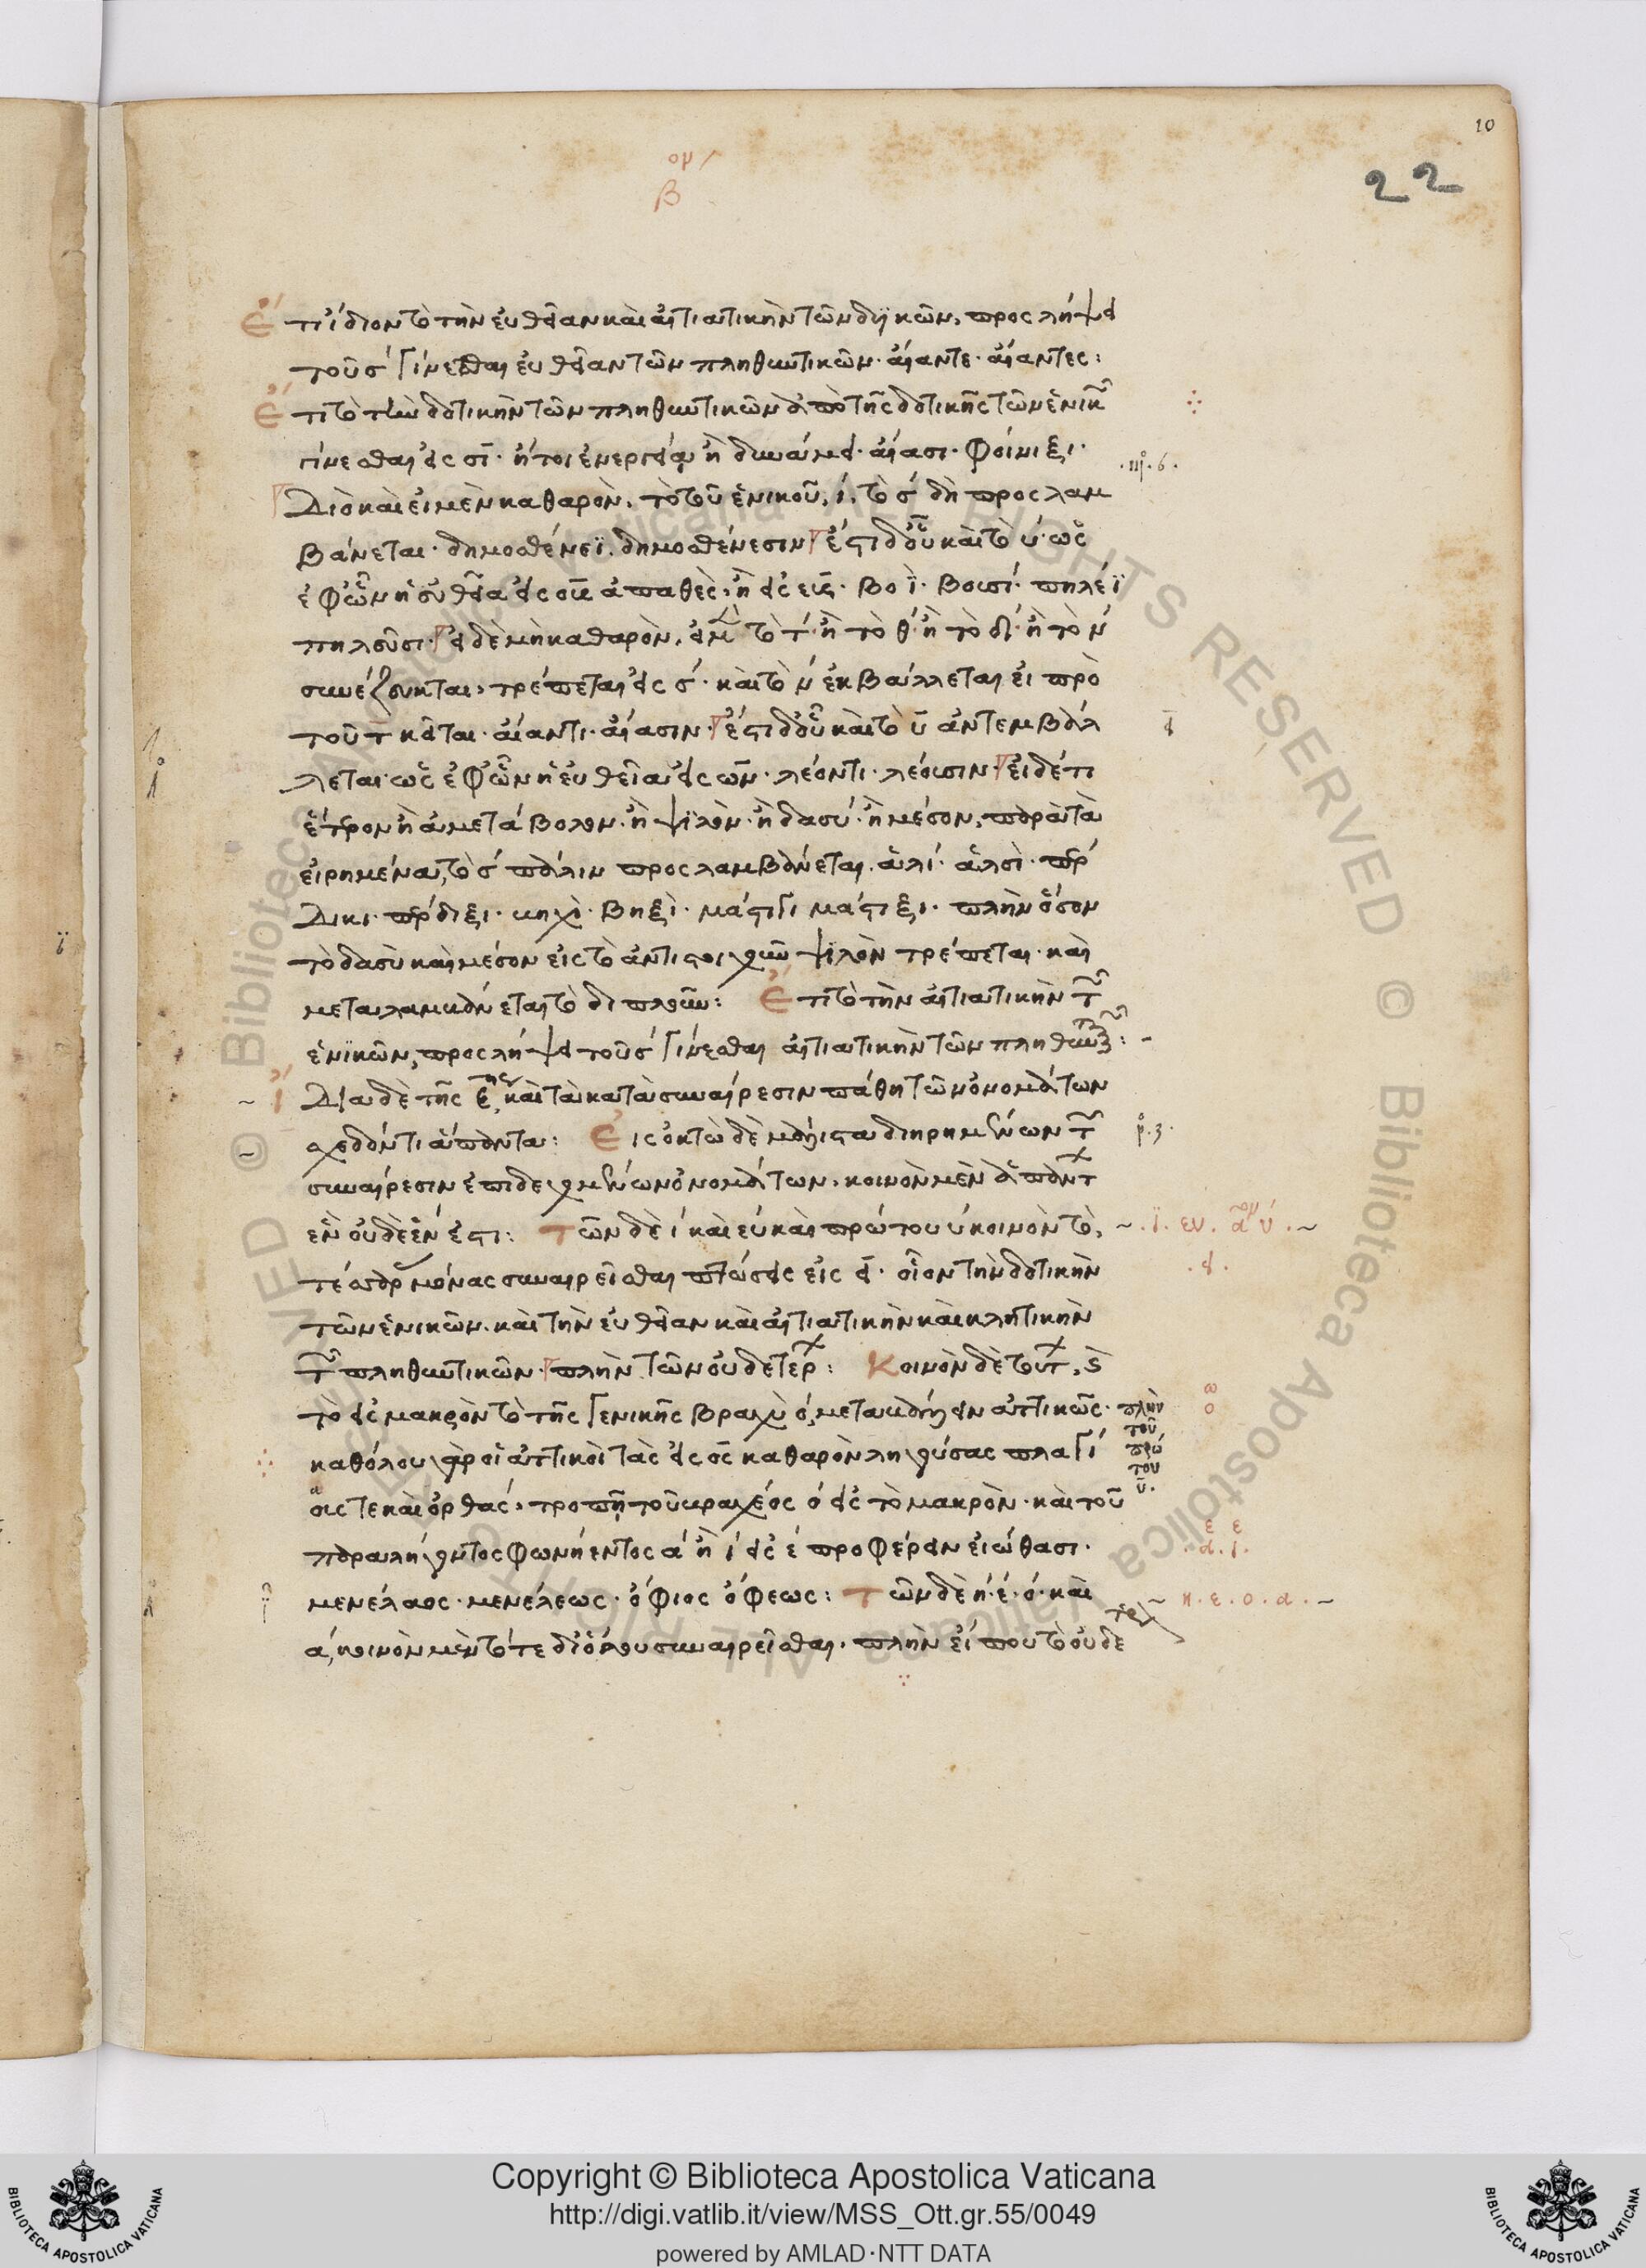 10
22
ομ
β
Ἔτι ἴδιον τὸ τὴν εὐθεῖαν καὶ αἰτιατικὴν τῶν δυϊκῶν, προσλήψει
τοῦ σ γίνεσθαι εὐθεῖαν τῶν πληθυντικῶν· αἴαντε· αἴαντες:
Ἔτι τὸ τὴν δοτικὴν τῶν πληθυντικῶν ἀπὸ τῆς δοτικῆς τῶν ἑνικῶν
γίνεσθαι εἰς σι· ἤτοι ἐνεργείᾳ ἢ δυνάμει· αἴασι· φοίνιξι·
Διὸ καὶ εἰ μὲν καθαρὸν, τὸ τοῦ ἑνικοῦ, ί, τὸ σ δὴ προσλαμ
βάνεται· δημοσθένεϊ. δημοσθένεσιν ἔστι δ' οὗ καὶ τὸ ύ· ὡς
ἐφ' ὧν ἡ εὐθεῖα εἰς ους ἀπαθὲς, ἢ εἰς εις· βοῒ· βουσί· πηλέϊ
πηλεῦσι· εἰ δὲ μὴ καθαρὸν, εἰ μὲν τὸ τ· ἢ τὸ θ· ἢ τὸ δ· ἢ τὸ ν
συνέζευκται, τρέπεται εἰς σ· καὶ τὸ ν ἐκβάλλεται εἰ πρὸ
τοῦ τ κεῖται· αἴαντι· αἴασιν· ἔστι δ' οὗ καὶ τὸ υ ἀντεμβάλ
λεται· ὡς ἐφ' ὧν ἡ εὐθεῖα εἰς ων· λέοντι· λέουσιν· εἰ δέ τι
ἕτερον ἢ ἀμετάβολον· ἢ ψιλὸν· ἢ δασύ· ἢ μέσον, παρὰ τὰ
εἰρημένα, τὸ σ πάλιν προσλαμβάνεται. ἁλί· ἁλσὶ· πέρ
δικι· πέρδιξι· βηχὶ· βηξὶ· μάστιγι μάστιξι· πλὴν ὅσον
τὸ δασὺ καὶ μέσον εἰς τὸ ἀντίστοιχον ψιλὸν τρέπεται· καὶ
μεταλαμβάνεται τὸ διπλοῦν: Ἔτι τὸ τὴν αἰτιατικὴν τῶν
ἑνικῶν, προσλήψει τοῦ σ γίνεσθαι αἰτιατικὴν τῶν πληθυντικῶν:
Ἴδια δὲ τῆς ε, καὶ τὰ κατὰ συναίρεσιν πάθη τῶν ὀνομάτων
σχεδόν τι ἅπαντα: Εἰς ὀκτὼ δὲ μάλιστα διῃρημένων τῶν
συναίρεσιν ἐπιδεχομένων ὀνομάτων, κοινὸν μὲν ἁπάντων
ἓν οὐδὲ ἕν ἐστι: Τῶν δὲ ί καὶ εύ καὶ πρώτου ύ κοινὸν τὸ,
τέσσαρας μόνας συναιρεῖσθαι πτώσεις εἰς ει· οἷον τὴν δοτικὴν
τῶν ἑνικῶν. καὶ τὴν εὐθεῖαν καὶ αἰτιατικὴν καὶ κλητικὴν
τῶν πληθυντικῶν· πλὴν τῶν οὐδετέρων: Κοινὸν δὲ τούτων, καὶ
τὸ εἰς μακρὸν τὸ τῆς γενικῆς βραχὺ ό, μεταβάλλειν ἀττικῶς· πλὴν
τοῦ πρώτου υ.
καθόλου γὰρ οἱ ἀττικοὶ τὰς εἰς ος καθαρὸν ληγούσας πλαγί
ας τε καὶ ὀρθάς, τροπῇ τοῦ βραχέος ό εἰς τὸ μακρὸν· καὶ τοῦ
παραλήγοντος φωνήεντος ά ἢ ί εἰς έ προφέρειν εἰώθασι·
μενέλαος· μενέλεως· ὄφιος ὄφεως: Τῶν δὲ ή· έ· ό· καὶ
ά, κοινὸν μὲν τό τε δι' ὅλου συναιρεῖσθαι· πλὴν εἴ που τὸ οὐδέ
τερ
ϊ. ευ. α ύ.
ει
ω
ο
ε ε
α. ι.
η. ε. ο. α.
Copyright © Biblioteca Apostolica Vaticana
http://digi.vatlib.it/view/MSS_Ott.gr.55/0049
powered by AMLAD·NTT DATA
BIBLIOTECA APOSTOLICA VATICANA
BIBLIOTECA APOSTOLICA VATICANA